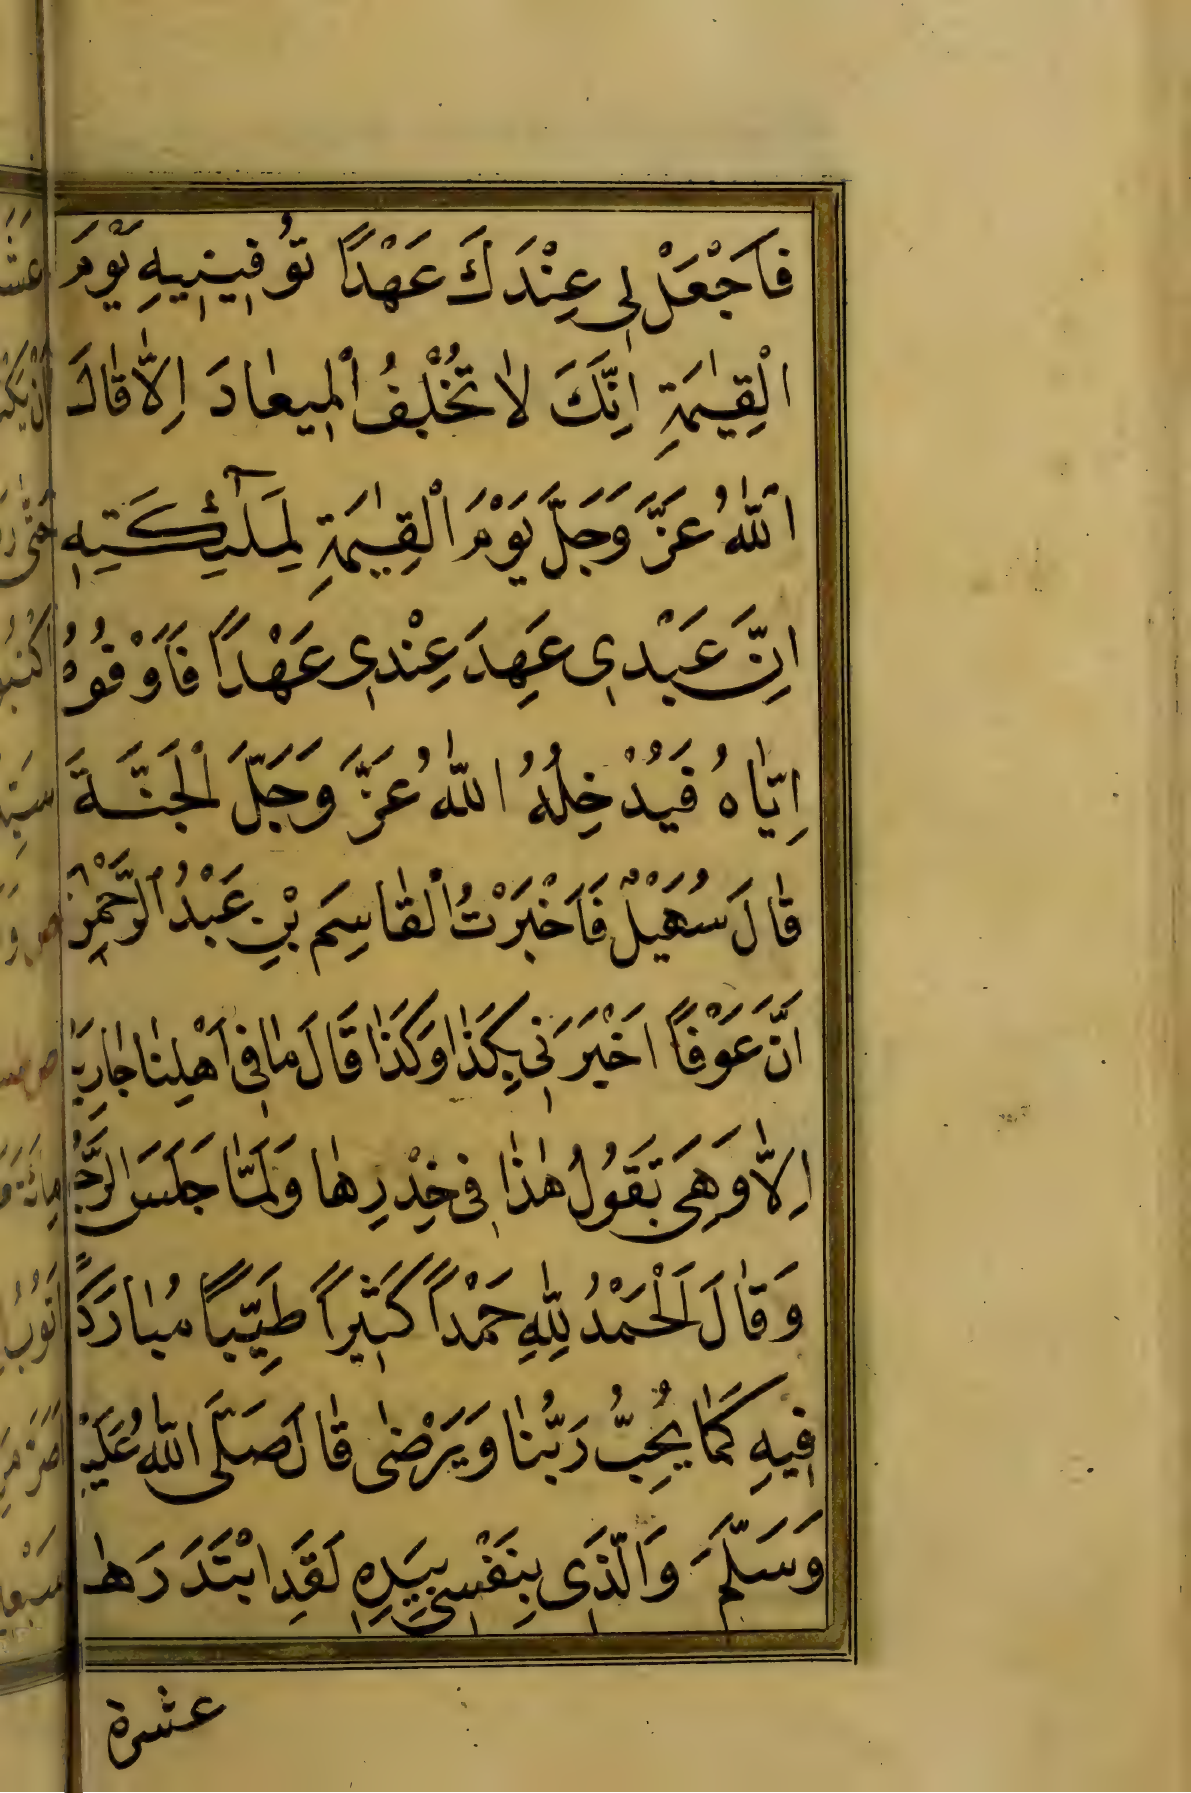 فَاجْعَلْ لِي عِنْدَكَ عَهْدًا تُوَفِّينِيهِ يَوْمَ
الْقِيٰمَةِ اِنَّكَ لَا تُخْلِفُ الْمِيعَادَ اِلَّا قَالَ
اللّٰهُ عَزَّ وَجَلَّ يَوْمَ الْقِيٰمَةِ لِمَلٰٓئِكَتِهِ
اِنَّ عَبْدِي عَهِدَ عِنْدِي عَهْدًا فَاَوْفُوهُ
اِيَّاهُ فَيُدْخِلُهُ اللّٰهُ عَزَّ وَجَلَّ الْجَنَّةَ
قَالَ سُهَيْلٌ فَاَخْبَرْتُ الْقَاسِمَ بْنِ عَبْدُ الرَّحْمٰنِ
اَنَّ عَوْفًا اَخْبَرَنِي بِكَذَا وَكَذَا قَالَ مَا فِي اَهْلِنَا جَارِيَةٌ
اِلَّا وَهِيَ تَقُولُ هٰذَا فِي خِدْرِهَا وَلَمَّا جَلَسَ الرَّجُلُ
وَقَالَ اَلْحَمْدُ لِلّٰهِ حَمْدًا كَثِيرًا طَيِّبًا مُبَارَكًا
فِيهِ كَمَا يُحِبُّ رَبُّنَا وَيَرْضٰى قَالَ صَلَّى اللّٰهُ عَلَيْهِ
وَسَلَّمَ وَالَّذِي نَفْسِي بِيَدِهِ لَقَدِ ابْتَدَرَهَا
عشرة